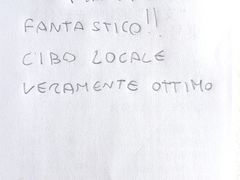 FANTASTICO!!
CIBO LOCALE
VERAMENTE OTTIMO